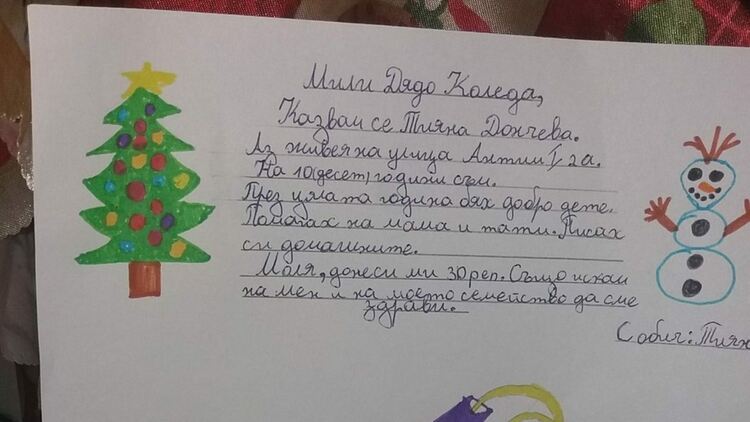 Мили Дядо Коледа,
Казвам се Тияна Дончева.
Аз живея на улица Антим I, 2а.
На 10(десет) години съм.
През цялата година бях добро дете.
Помагах на мама и тати. Писах
си домашните.
Моля, донеси ми зореп. Също искам
на мен и на моето семейство да сме
здрави.
С обич: Тиян